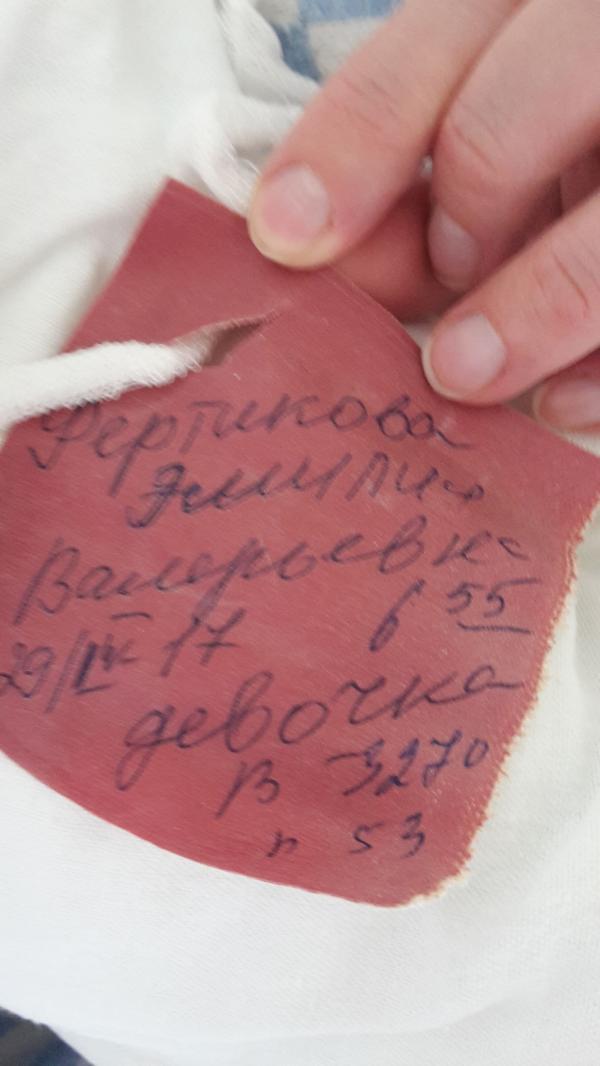 Фертикова
Эмилия
Валерьевна
6 55
29/IV 17
девочка
В 3270
р 53